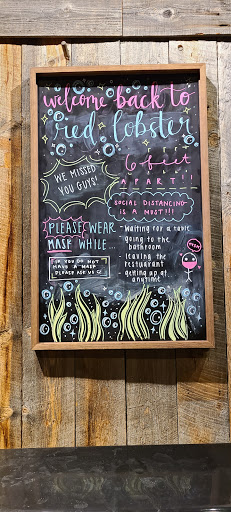 welcome back to
red lobster
WE MISSED
YOU GUYS!
6 feet
APART!!
SOCIAL DISTANCING
IS A MUST!!!
PLEASE WEAR
MASK WHILE...
- Waiting for a table
- going to the
bathroom
- leaving the
restaurant
- getting up at
anytime
IF YOU DO NOT
HAVE A MASK
PLEASE ASK US